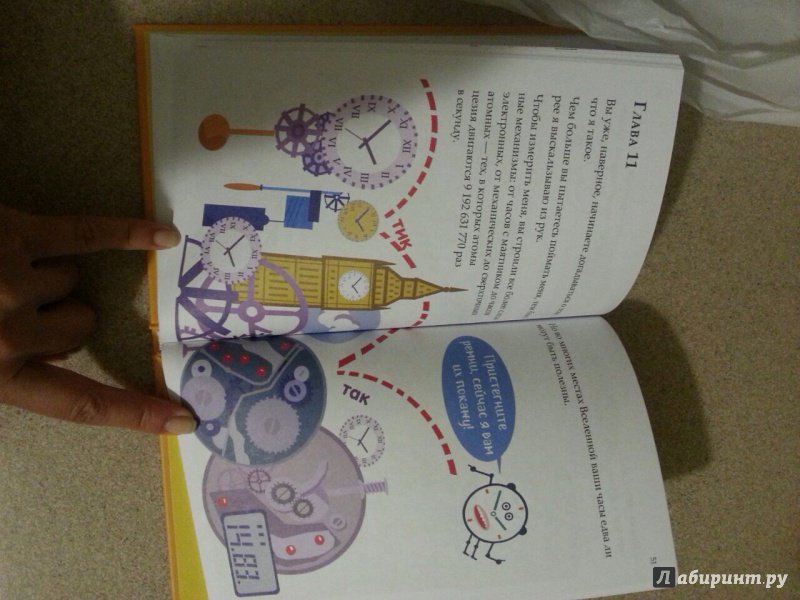 ГЛАВА 11
Вы уже, наверное, начинаете догадываться,
что я такое.
Чем больше вы пытаетесь поймать меня, тем
рее я выскальзываю из рук.
Чтобы измерить меня, вы строили все более
ные механизмы: от часов с маятником до часов
электронных, от механических до сверхточных
атомных — тех, в которых атомы
цезия двигаются 9 192 631 770 раз
в секунду.
ТИК
ТАК
Но во многих местах Вселенной ваши часы едва ли
могут быть полезны.
Пристегните
ремни, сейчас я вам
их покажу!
51
Лабиринт.ру